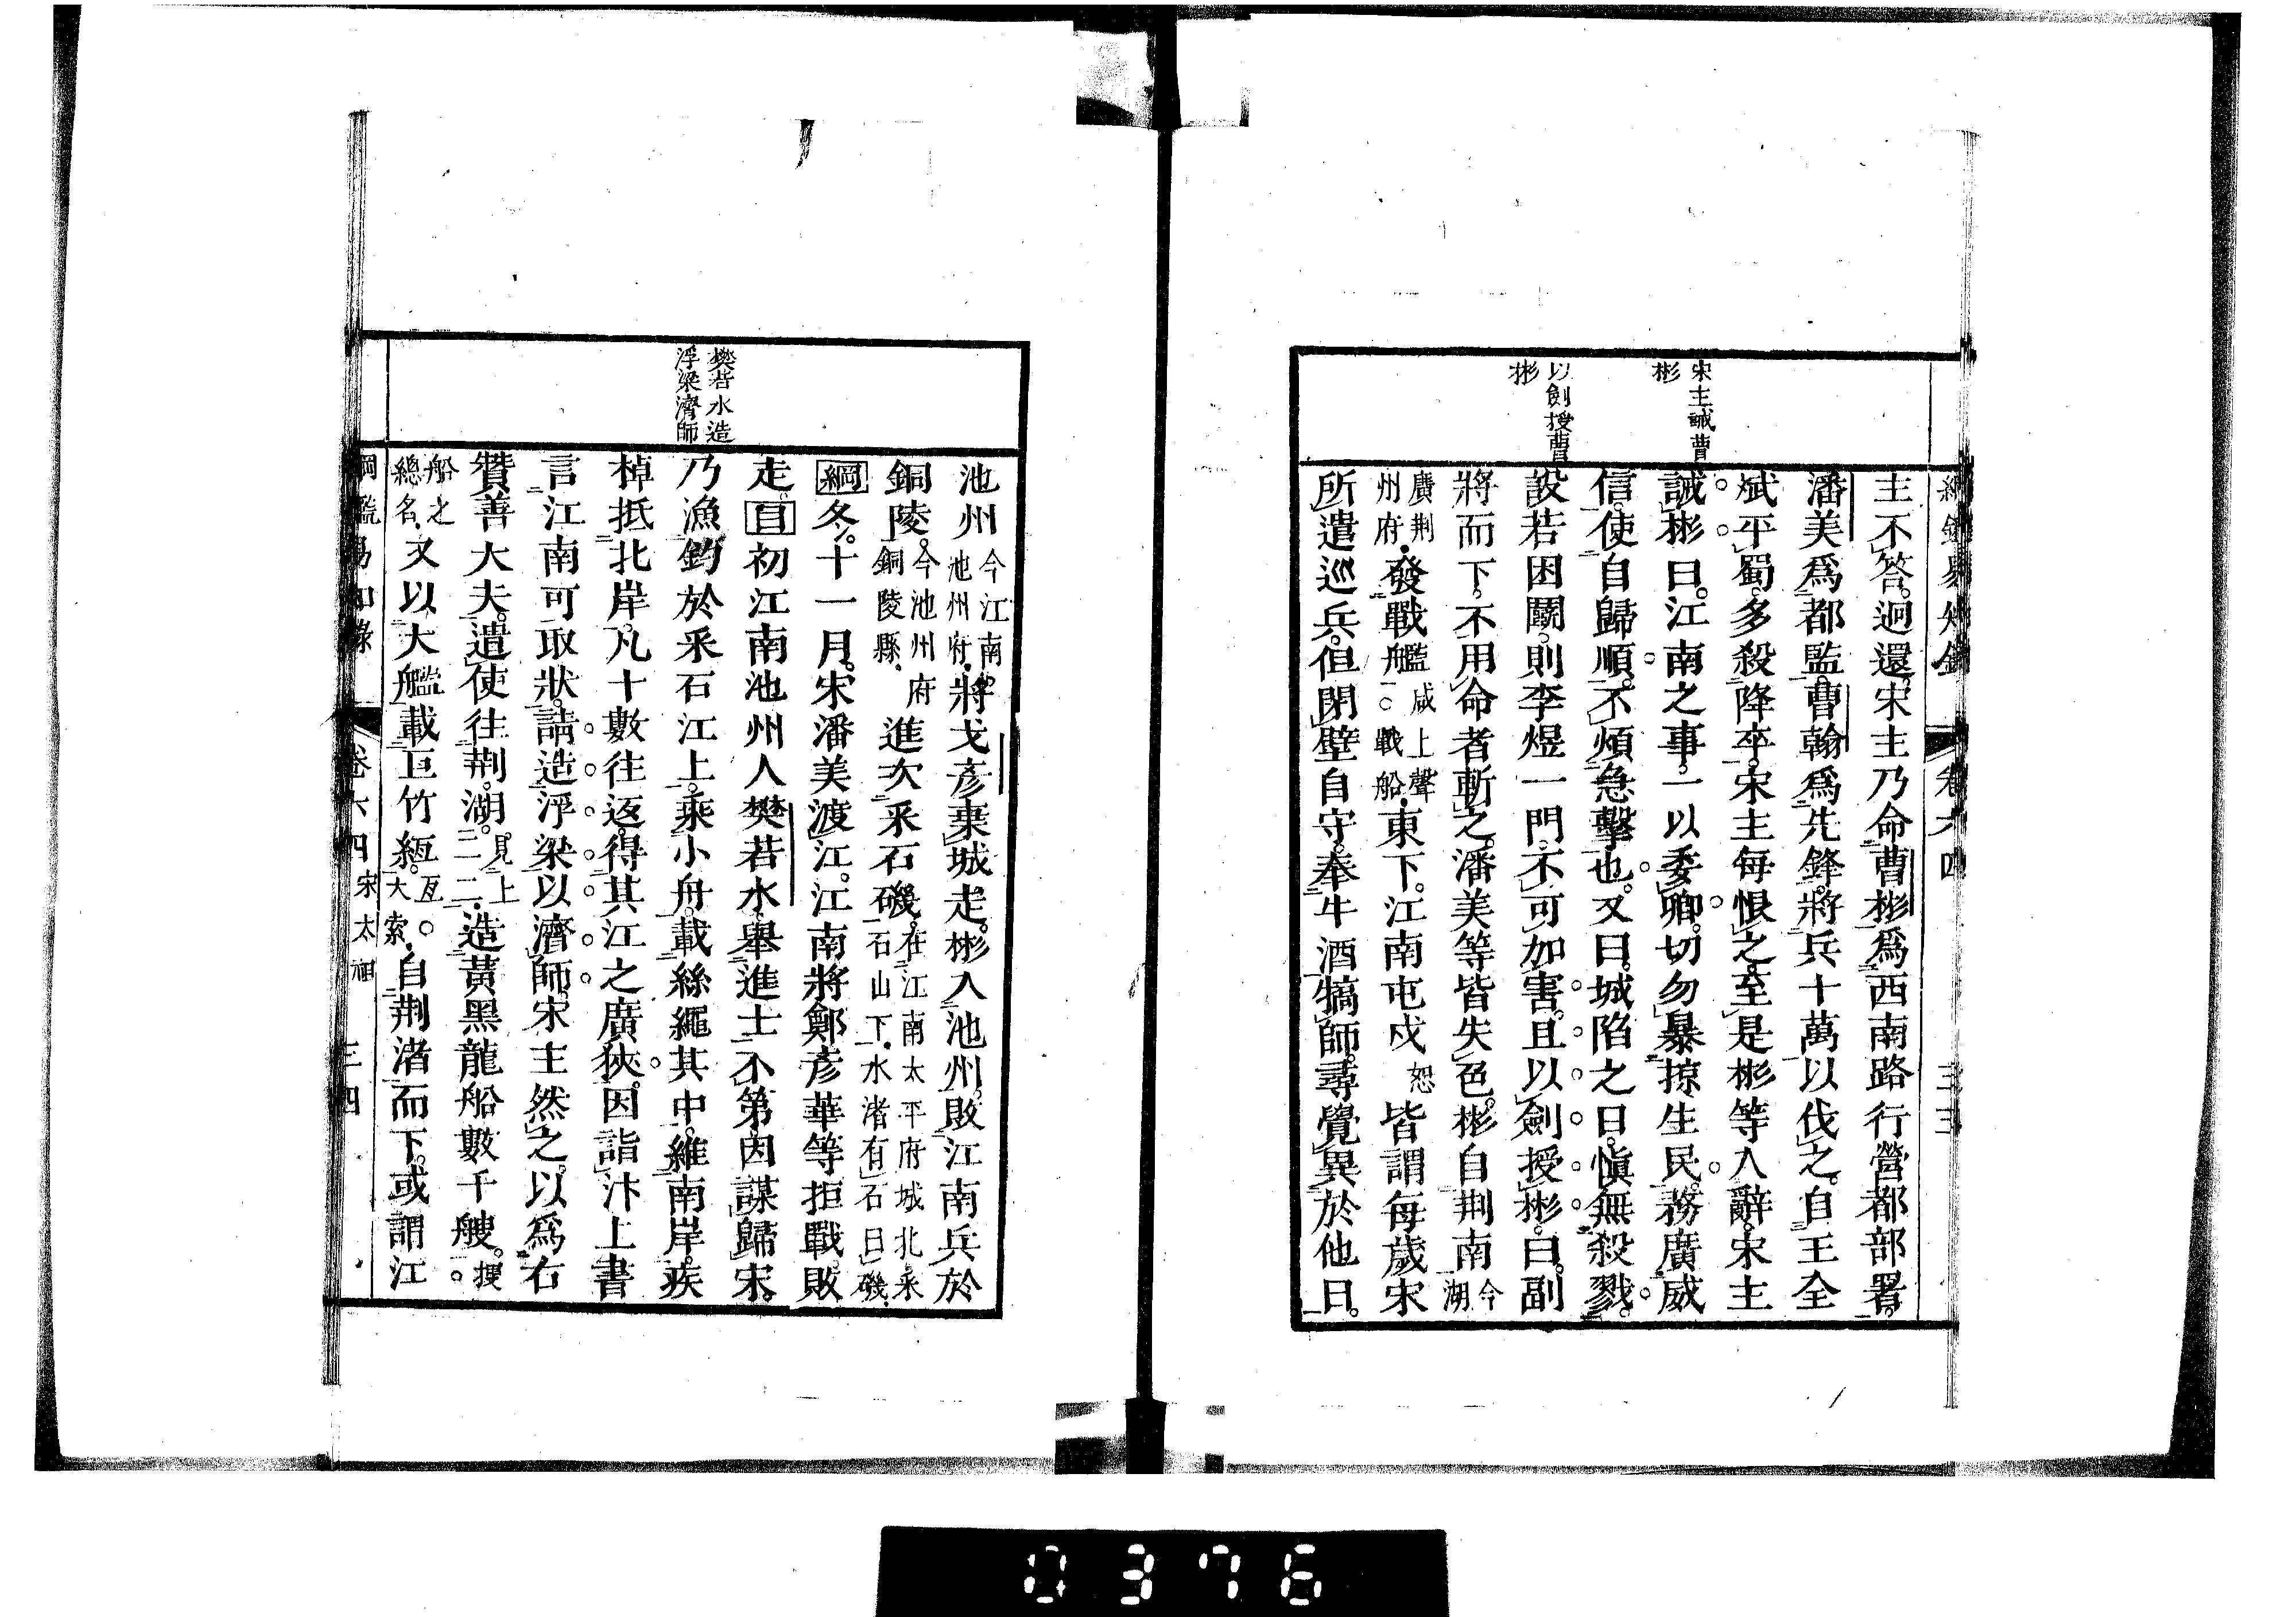 宋主誡曹
彬
以劍授曹
彬
主不答。迥還。宋主乃命曹彬爲西南路行營都部署。
潘美爲都監。曹翰爲先鋒。將兵十萬以伐之。自王全
斌平蜀。多殺降卒。宋主每恨之。至是彬等入辭。宋主
誡彬曰。江南之事。一以委卿。切勿暴掠生民。務廣威
信。使自歸順。不煩急擊也。又曰。城陷之日。愼無殺戮。
設若困鬭。則李煜一門。不可加害。且以劍授彬曰。副
將而下。不用命者斬之。潘美等皆失色。彬自荆南今湖
廣荆州府。發戰艦咸上聲。戰船。東下。江南屯戍恕皆謂每歲宋
所遣巡兵。但閉壁自守。奉牛酒犒師。尋覺異於他日。
卷六四
三三
樊若水造
浮梁濟師
池州今江南池州府。將戈彥棄城走。彬入池州。敗江南兵於
銅陵。今池州府銅陵縣。進次采石磯。在江南太平府城北采石山下。水渚有石曰磯。
綱冬。十一月。宋潘美渡江。江南將鄭彥華等拒戰。敗
走。目初江南池州人樊若水舉進士不第。因謀歸宋。
乃漁釣於采石江上。乘小舟。載絲繩其中。維南岸。疾
棹抵北岸。凡十數往返。得其江之廣狹。因詣汴上書
言江南可取狀。請造浮梁以濟師。宋主然之。以爲右
贊善大夫。遣使往荆湖。見上二二。造黃黑龍船數千艘。搜。
船之總名。又以大艦載巨竹絚。亙。大索。自荆渚而下。或謂江
綱鑑易知錄 卷六四 宋太祖 三四